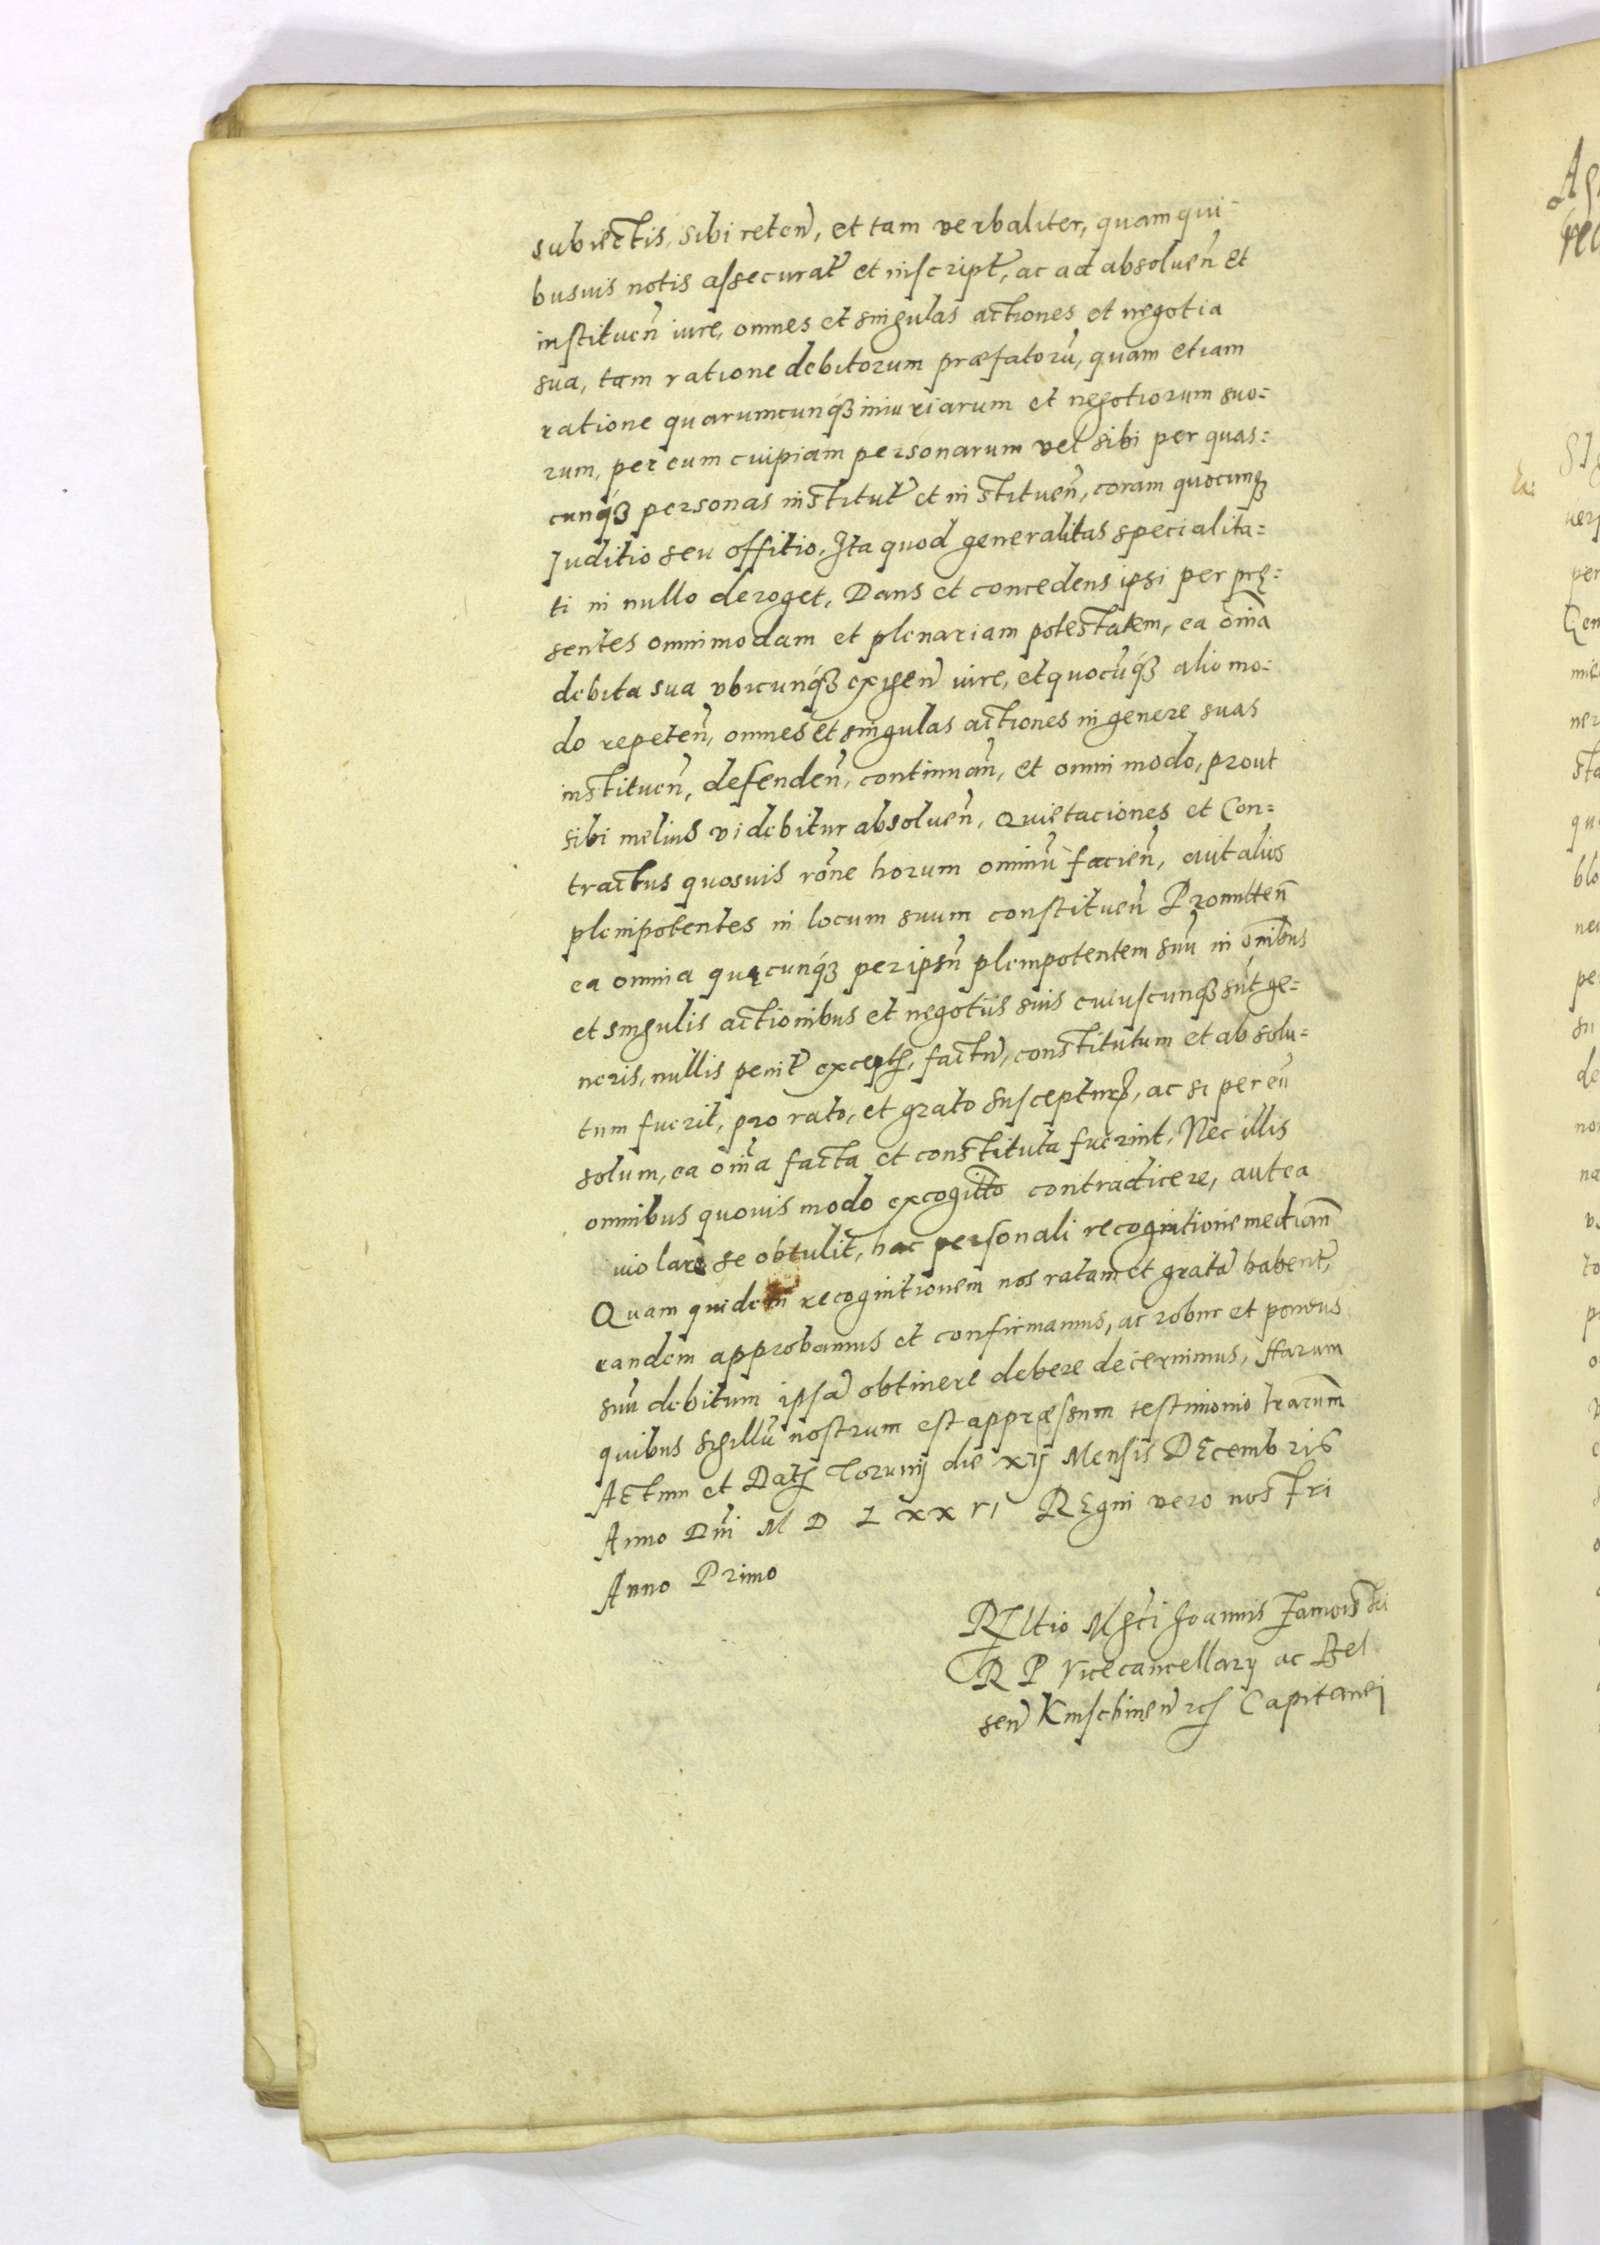 subiectis, sibi reten̄, et tam verbaliter, quam qui=
busuis notis assecurat̄ et inscript̄, ac ad absoluen̄ et
instituen̄ iure, omnes et singulas actiones et negotia
sua, tam ratione debitorum præfatorū, quam etiam
ratione quarumcunq́ꝫ iniuriarum et negotiorum suo=
rum, per eum cuipiam personarum vel sibi per quas=
cunq́ꝫ personas institut̄ et instituen̄, coram quocunqꝫ
Juditio seu offitio, Ita quod generalitas specialita=
ti in nullo deroget, Dans et concedens ipsi per prę=
sentes omnimodam et plenariam potestatem, ea om̄ia
debita sua vbicunq́ꝫ exigen̄ iure, et quocūq́ꝫ alio mo=
do repeten̄, omnes et singulas actiones in genere suas
instituen̄, defenden̄, continuan̄, et omni modo, prout
sibi melius videbitur absoluen̄, Quietaciones et Con=
tractus quosuis rōne horum omniū facien̄, aut alios
plenipotentes in locum suum constituen̄ Promitten̄
ea omnia quęcunq́ꝫ per ipsū plenipotentem suū in om̄ibus
et singulis actionibus et negotiis suis cuiuscunqꝫ sūt ge=
neris, nullis penit̄ exceptis, factū, constitutum et absolu=
tum fuerit, pro rato, et grato suscepturꝫ, ac si per eū
solum, ea om̄ia facta et constituta fuerint, Nec illis
omnibus quouis modo excogitato contradicere, aut ea
violare se obtulit, hac personali recognitione median̄
Quam quidem recognitionem nos ratam et gratā habent̄,
eandem approbamus et confirmamus, ac robur et pondus
suū debitum ipsā obtinere debere decernimus, Harum
quibus sigillū nostrum est appræssum testimonio lrarum
Actum et Datꝭ Torunij die xij Mensis DEcembris
Anno Dn̄i M D L xx vi REgni vero nostri
Anno Primo
REltio Mgci Joannis Zamoiskii
R P Vicecancellarij ac Bel
sen̄ Knischinen̄ zcꝭ Capitanei